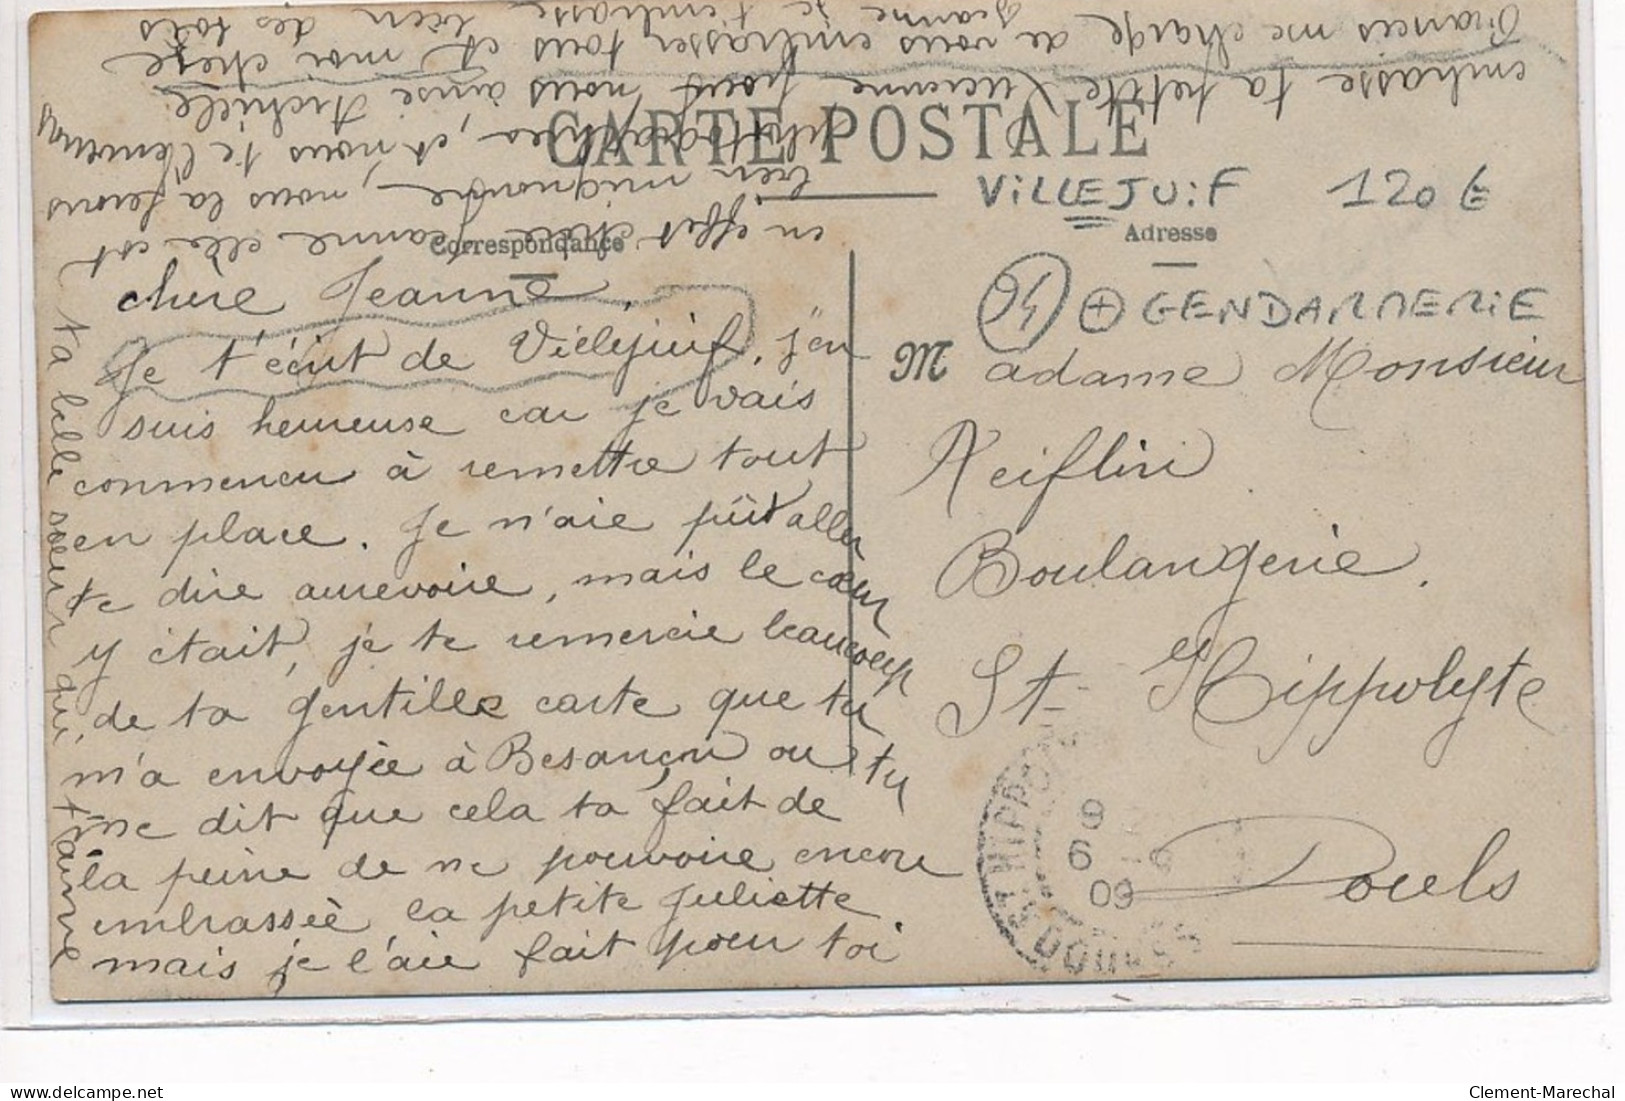 CARTE POSTALE
VILLEJUIF 120 €
Correspondance
Adresse
94 + GENDARMERIE
chère Jeanne,
Je t'écrit de Vilejuif, j'en
suis heureuse car je vais
commencer à remettre tout
en place. Je n'aie pût aller
te dire aurevoire, mais le cœur
y était, je te remercie beaucoup
de ta gentille carte que tu
m'a envoyée à Besançon ou tu
me dit que cela ta fait de
la peine de ne pouvoire encore
embrassée la petite Juliette,
mais je l'aie fait pour toi
en effet chère Jeanne elle est
bien mignonne, nous la ferons
photographier, et nous te l'enverrons
embrasse ta petite Lucienne pour nous, ainse Achille
Francis me charge de vous embrasser tous et moi chere
Jeanne je t'embrasse bien des fois
ta belle sœur qui t'aime
M adame Monsieur
Reiflin
Boulangerie.
St-Hippolyte
Doubs
ST HIPPOLYTE
9
6
09
DOUBS
Clement-Marechal